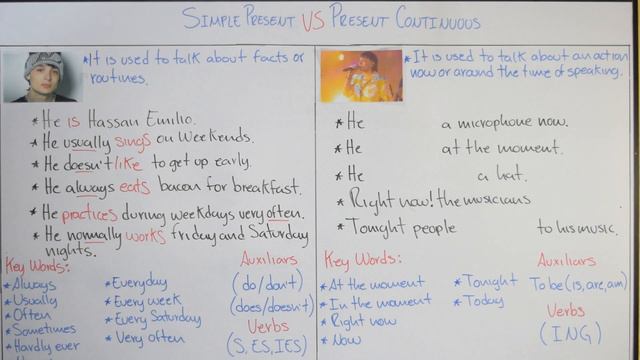 SIMPLE PRESENT VS PRESENT CONTINUOUS
*It is used to talk about facts or
routines.
*He is HASSAN Emilio.
*He usually sings on weekends.
*He doesn't like to get up early.
*He always eats bacon for breakfast.
*He practices during weekdays very often.
*He normally works friday and Saturday
nights.
Key Words:
*Always
*Usually
*Often
*Sometimes
*Hardly ever
*Everyday
*Every week
*Every Saturday
*Very often
Auxiliars
(do/don't)
(does/doesn't)
Verbs
(S, ES, IES)
*It is used to talk about an action
now or around the time of speaking.
*He a microphone now.
*He at the moment.
*He a hat.
*Right now! the musicians
*Tonight people to his music.
Key Words:
*At the moment
*In the moment
*Right now
*Now
*Tonight
*Today
Auxiliars
To be (is, are, am)
Verbs
(ING)